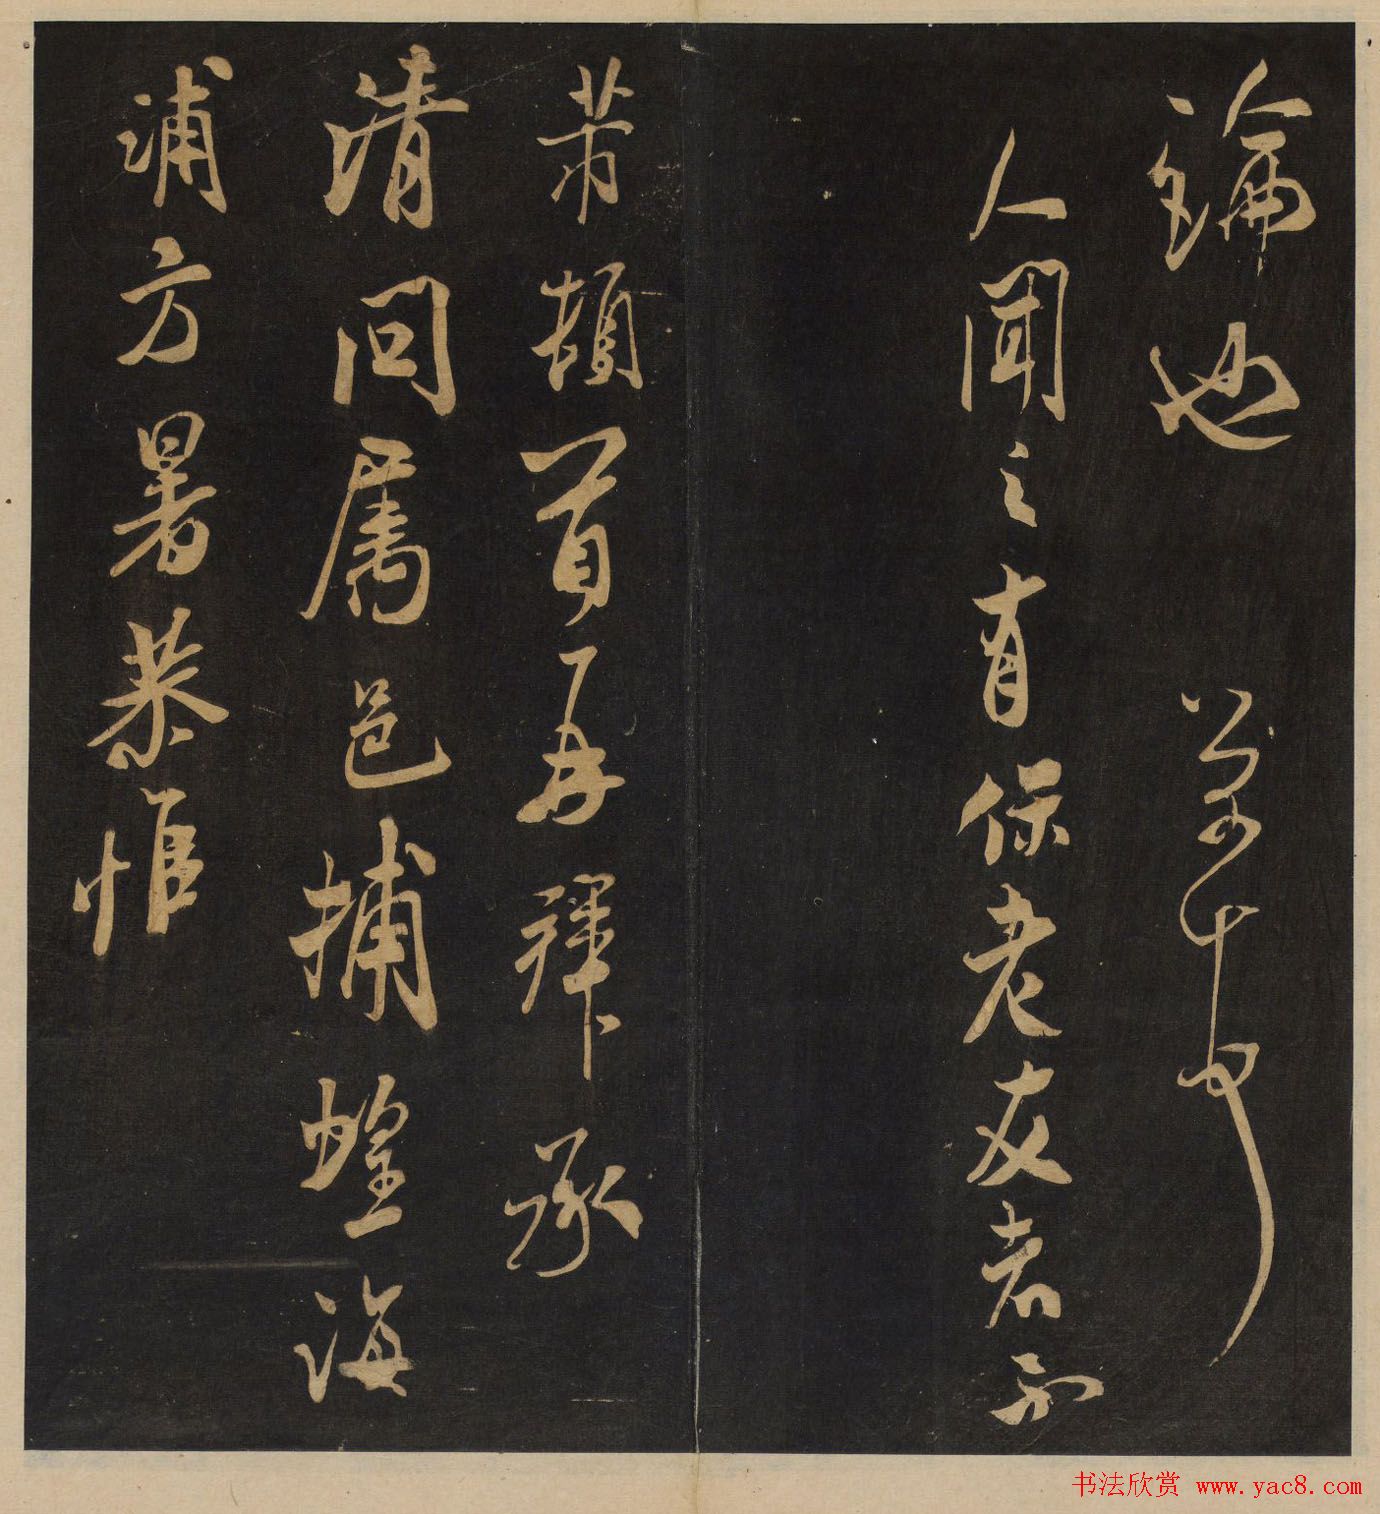 論也 芾頓首
人聞之有保老友者不
芾頓首再拜承
清問屬邑捕蝗海
浦方暑恭惟
书法欣赏 www.yac8.com